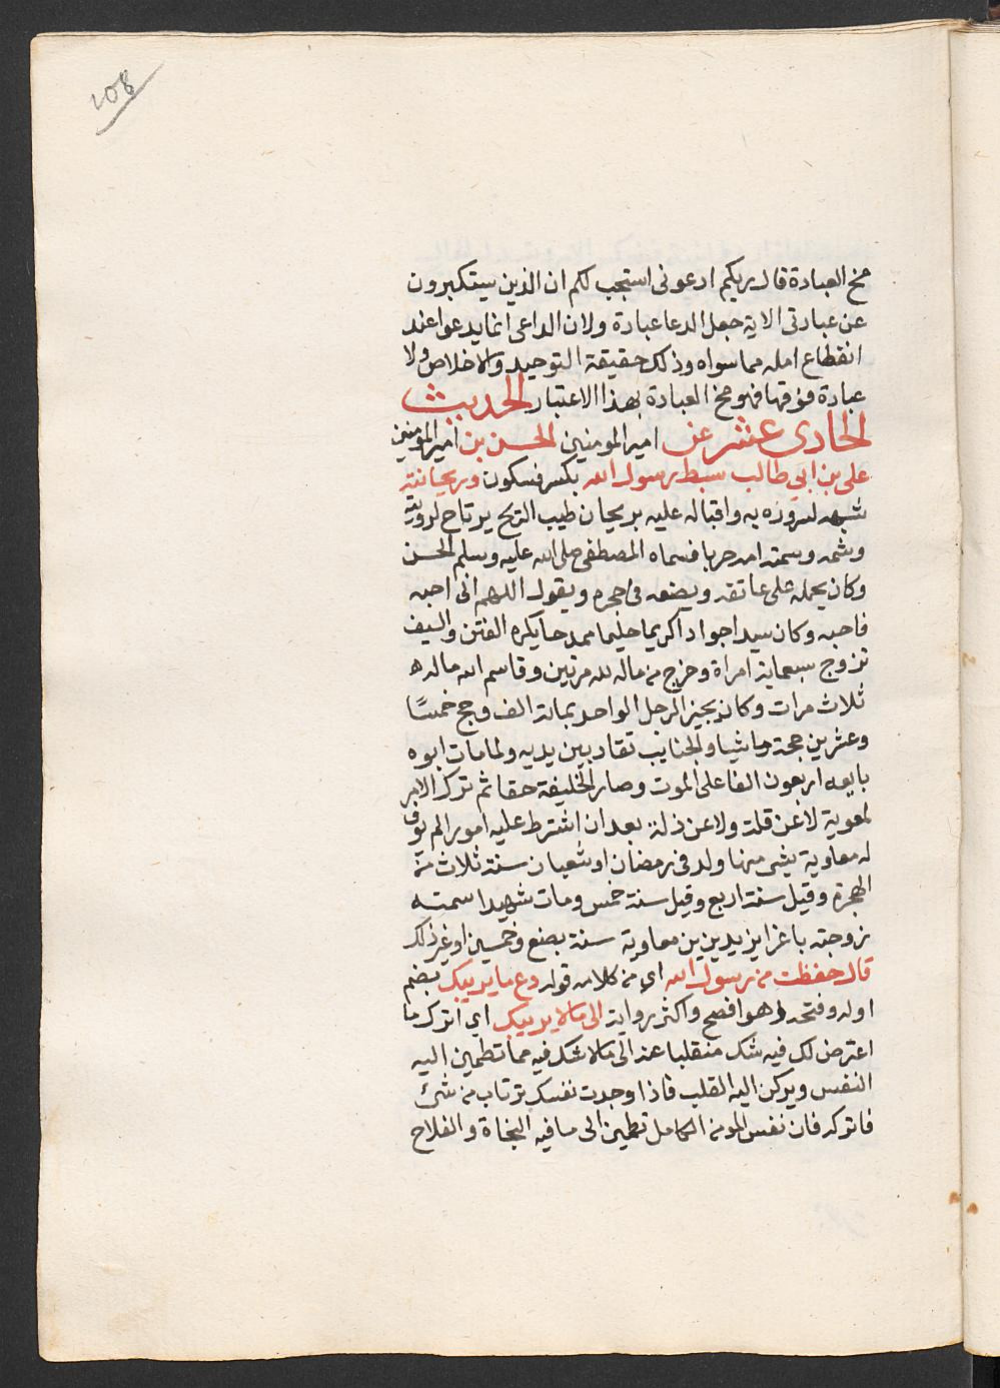 108
مخ العبادة قال ربكم ادعوني استجب لكم ان الذين يستكبرون
عن عبادتي الاية جعل الدعا عبادة ولان الداعي انما يدعوا عند
انقطاع امله مما سواه وذلك حقيقة التوحيد والاخلاص ولا
عبادة فوقها فهو مخ العبادة بهذا الاعتبار الحديث
الحادي عشر عن امير المومنين الحسن بن امير المومنين
علي بن ابي طالب سبط رسول الله بكسر فسكون وريحانته
شبهه لسروره به واقباله عليه بريحان طيب الريح يرتاح لرويته
وشمه وسمته امه حربا فسماه المصطفى صلى الله عليه وسلم الحسن
وكان يحمله على عاتقه ويضعه في حجره ويقول اللهم اني احبه
فاحبه وكان سيدا جوادا كريما حليما ممدحا يكره الفتن والسيف
تزوج سبعماية امراة وخرج من ماله لله مرتين وقاسم الله ماله
ثلاث مرات وكان يجيز الرجل الواحد بماتة الف وحج خمسًا
وعشرين حجة ماشيا والجنايب تقاد بين يديه ولما مات ابوه
بايعه اربعون الفا على الموت وصار الخليفة حقا ثم ترك الامر
لمعوية لا عن قلة ولا عن ذلة بعد ان اشترط عليه امورا لم يوف
له معاوية بشي منها ولد في رمضان او شعبان سنة ثلاث من
الهجرة وقيل سنة اربع وقيل سنة خمس ومات شهيدا سمته
زوجته باغرا يزيد بن معاوية سنة بضع وخمسين او غير ذلك
قال حفظت من رسول الله اي من كلامه قوله دع ما يريبك بضم
اوله وفتحه وهو افصح واكثر رواية الى ما لا يريبك اي اترك ما
اعترض لك فيه شك منقلبا عنه الى ما لا شك فيه مما تطمين اليه
النفس ويركن اليه القلب فاذا وجدت نفسك ترتاب من شئ
فاتركه فان نفس المومن الكامل تطمين الى ما فيه النجاة والفلاح